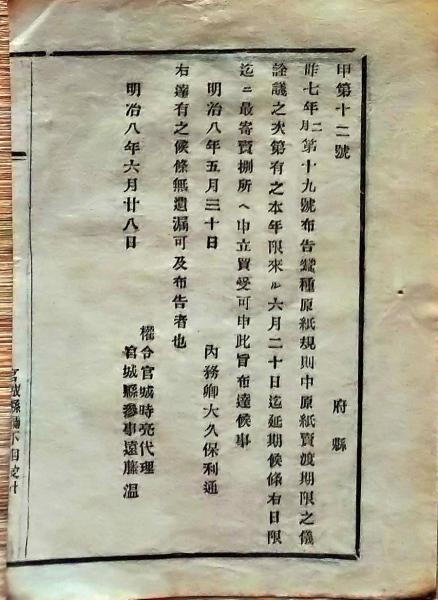 甲第十二號
府縣
昨七年二月第十九號布告蠶種原紙規則中原紙賣渡期限之儀
詮議之次第有之本年限來ル六月二十日迄延期候條右日限
迄ニ最寄賣捌所ヘ申立買受可申此旨布達候事
明治八年五月三十日
內務卿大久保利通
右達有之候條無遺漏可及布告者也
明治八年六月廿八日
權令宮城時亮代理
宮城縣參事遠藤溫